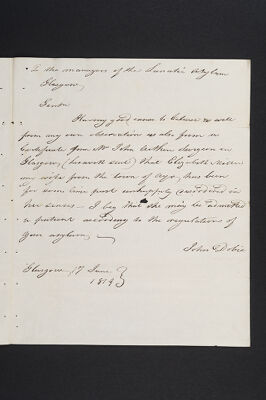 To the managers of the Lunatic Asylum
Glasgow.
Gentn
Having good cause to believe as well
from my own observation as also from a
Certificate from Mr John Arthur Surgeon in
Glasgow, (herewith sent) that Elizabeth
wife from the town of Ayr, has been
for some time past unhappily disordered in
her senses – I beg that she may be admitted
a patient according to the regulations of
your asylum, —
John Dobie
Glasgow 17 June
1814